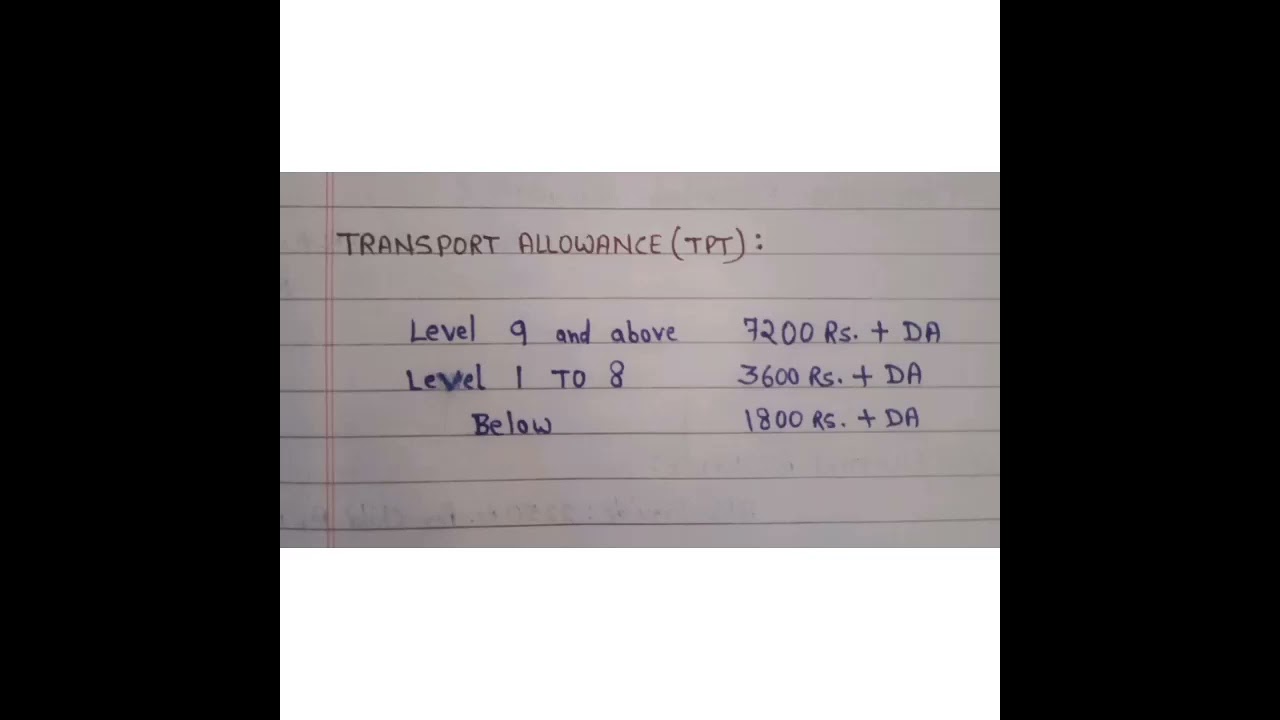 TRANSPORT ALLOWANCE (TPT) :
Level 9 and above 7200 Rs. + DA
Level 1 TO 8 3600 Rs. + DA
Below 1800 Rs. + DA